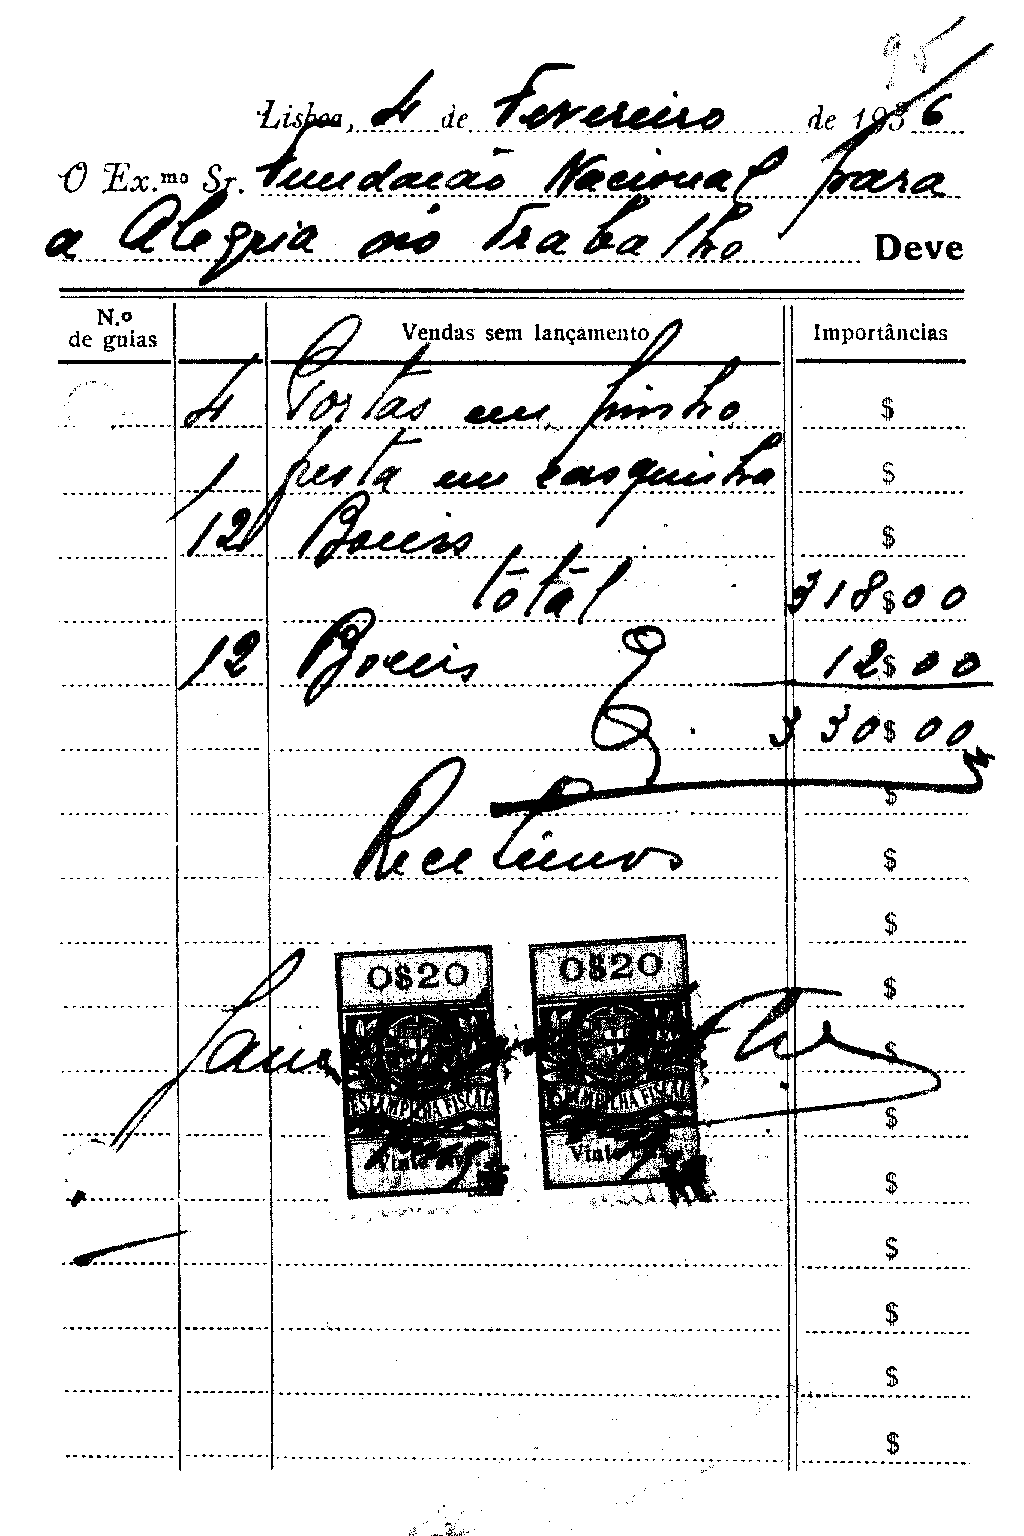 95
Lisboa, 4 de Fevereiro de 1936
O Ex.mo Sr. Fundacão Nacional para
a Alegria no Trabalho Deve
N.º de guias Vendas sem lançamento Importâncias
4 Portas em pinho $
1 porta em casquinha $
12 $
total 318$00
12 12$00
330$00
$
Recebemos $
$
0$20 0$20 $
$
ESTAMPILHA FISCAL ESTAMPILHA FISCAL $
Vinte Vinte $
$
$
$
$